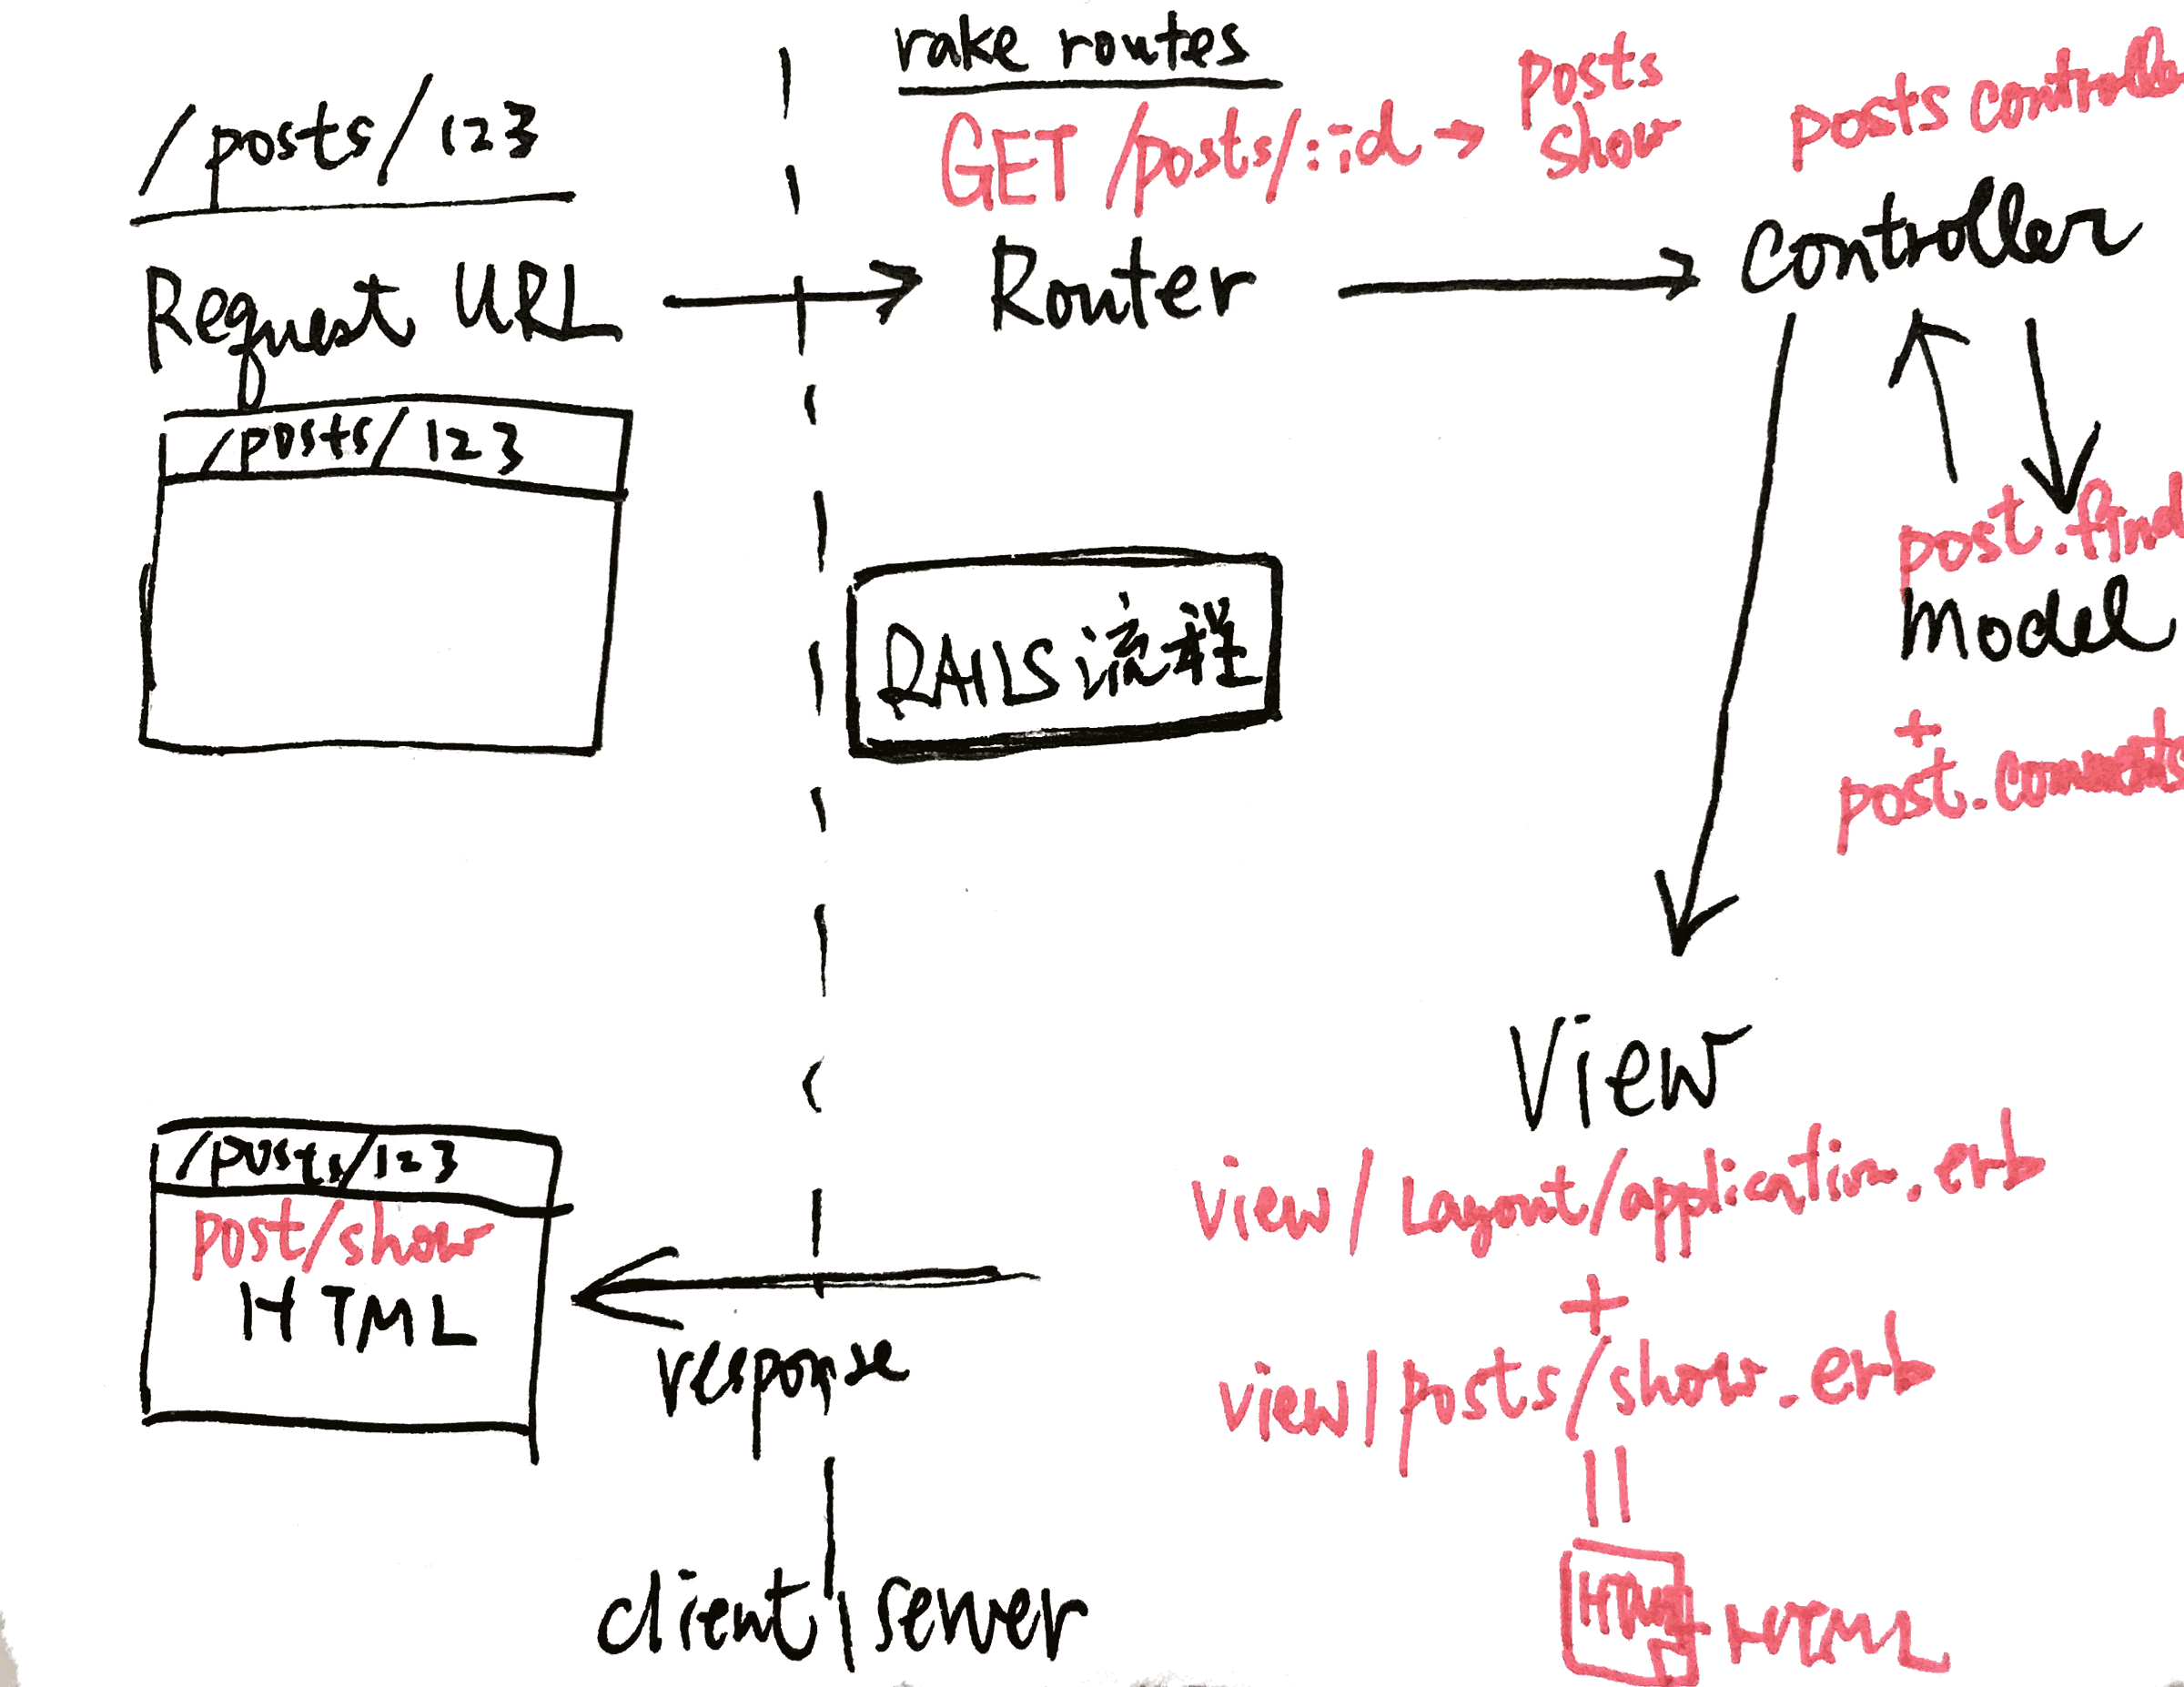 rake routes
/posts/123
GET /posts/:id → posts
show
posts controlle
Request URL
Router
Controller
/posts/123
post.find
Model
+
post.comments
RAILS流程
View
/posts/123
post/show
HTML
view/Layout/application.erb
+
view/posts/show.erb
=
response
HTML HTML
client | server